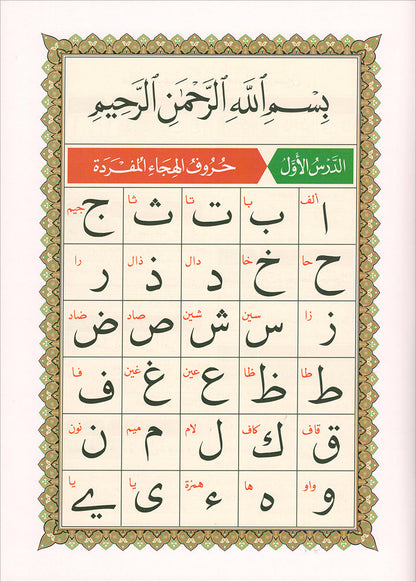 بِسْمِ ٱللَّهِ ٱلرَّحْمَٰنِ ٱلرَّحِيمِ
الدَّرْسُ الأَوَّلُ حُرُوفُ الهِجَاءِ المُفْرَدَة
ألف با تا ثا جيم
ا ب ت ث ج
حا خا دال ذال را
ح خ د ذ ر
زا سين شين صاد ضاد
ز س ش ص ض
طا ظا عين غين فا
ط ظ ع غ ف
قاف كاف لام ميم نون
ق ك ل م ن
واو ها همزة يا يا
و ه ء ى ے